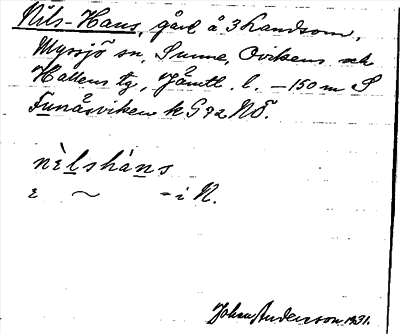 Nils-Hans, gård å 3 Landsom,
Myssjö sn, Sunne, Ovikens och
Hallens tg, Jämtl. l. – 150 m S
Funäsviken k G 92 NÖ.
nèlshàns
ε ~ -i N.
Johan Anderson 1931.